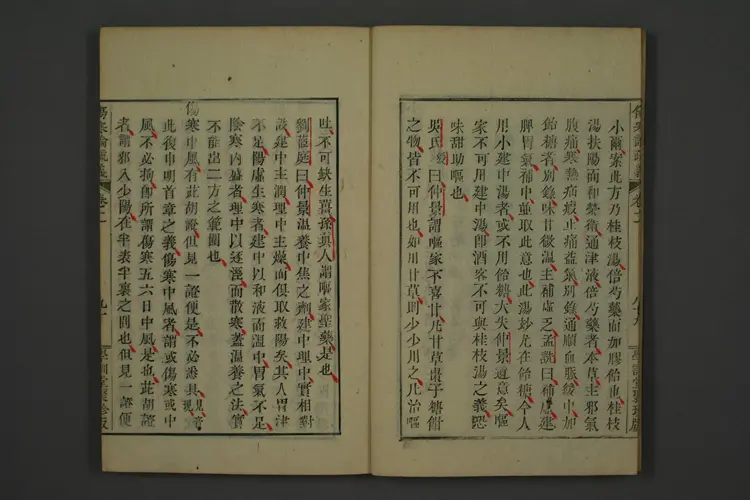 小爾案此方乃桂枝湯倍芍藥而加膠飴也桂枝
湯扶陽而和榮衛通津液倍芍藥者本草主邪氣
腹痛寒熱疝瘕止痛益氣別錄通順血脈緩中加
飴糖者別錄味甘微溫主補虛乏孟詵曰補虛建
脾胃氣補中並取此意也此湯妙尤在飴糖今人
用小建中湯者或不用飴糖大失仲景遺意矣嘔
家不可用建中湯即酒客不可與桂枝湯之義恐
味甜助嘔也
吳氏綬曰仲景謂嘔家不喜甘凡甘草棗子糖餹
之物皆不可用也如用甘草則少少用之凡治嘔
吐不可缺生薑孫真人謂嘔家聖藥是也
劉蓶庭曰仲景溫養中焦之劑建中理中實相對
設建中主潤理中主燥而俱取救陽矣其人胃津
不足陽虛生寒者建中以和液而溫中胃氣不足
陰寒內盛者理中以逐溼而散寒蓋溫養之法實
不能出二方之範圍也
傷寒中風有此胡證但見一證便是不必悉具見音現
此復申明首章之義傷寒中風者謂或傷寒或中
風不必拘卽所謂傷寒五六日中風是也此胡證
者謂邪入少陽在半表半裏之間也但見一證便
傷寒論疏義
卷二
學訓堂聚珍版